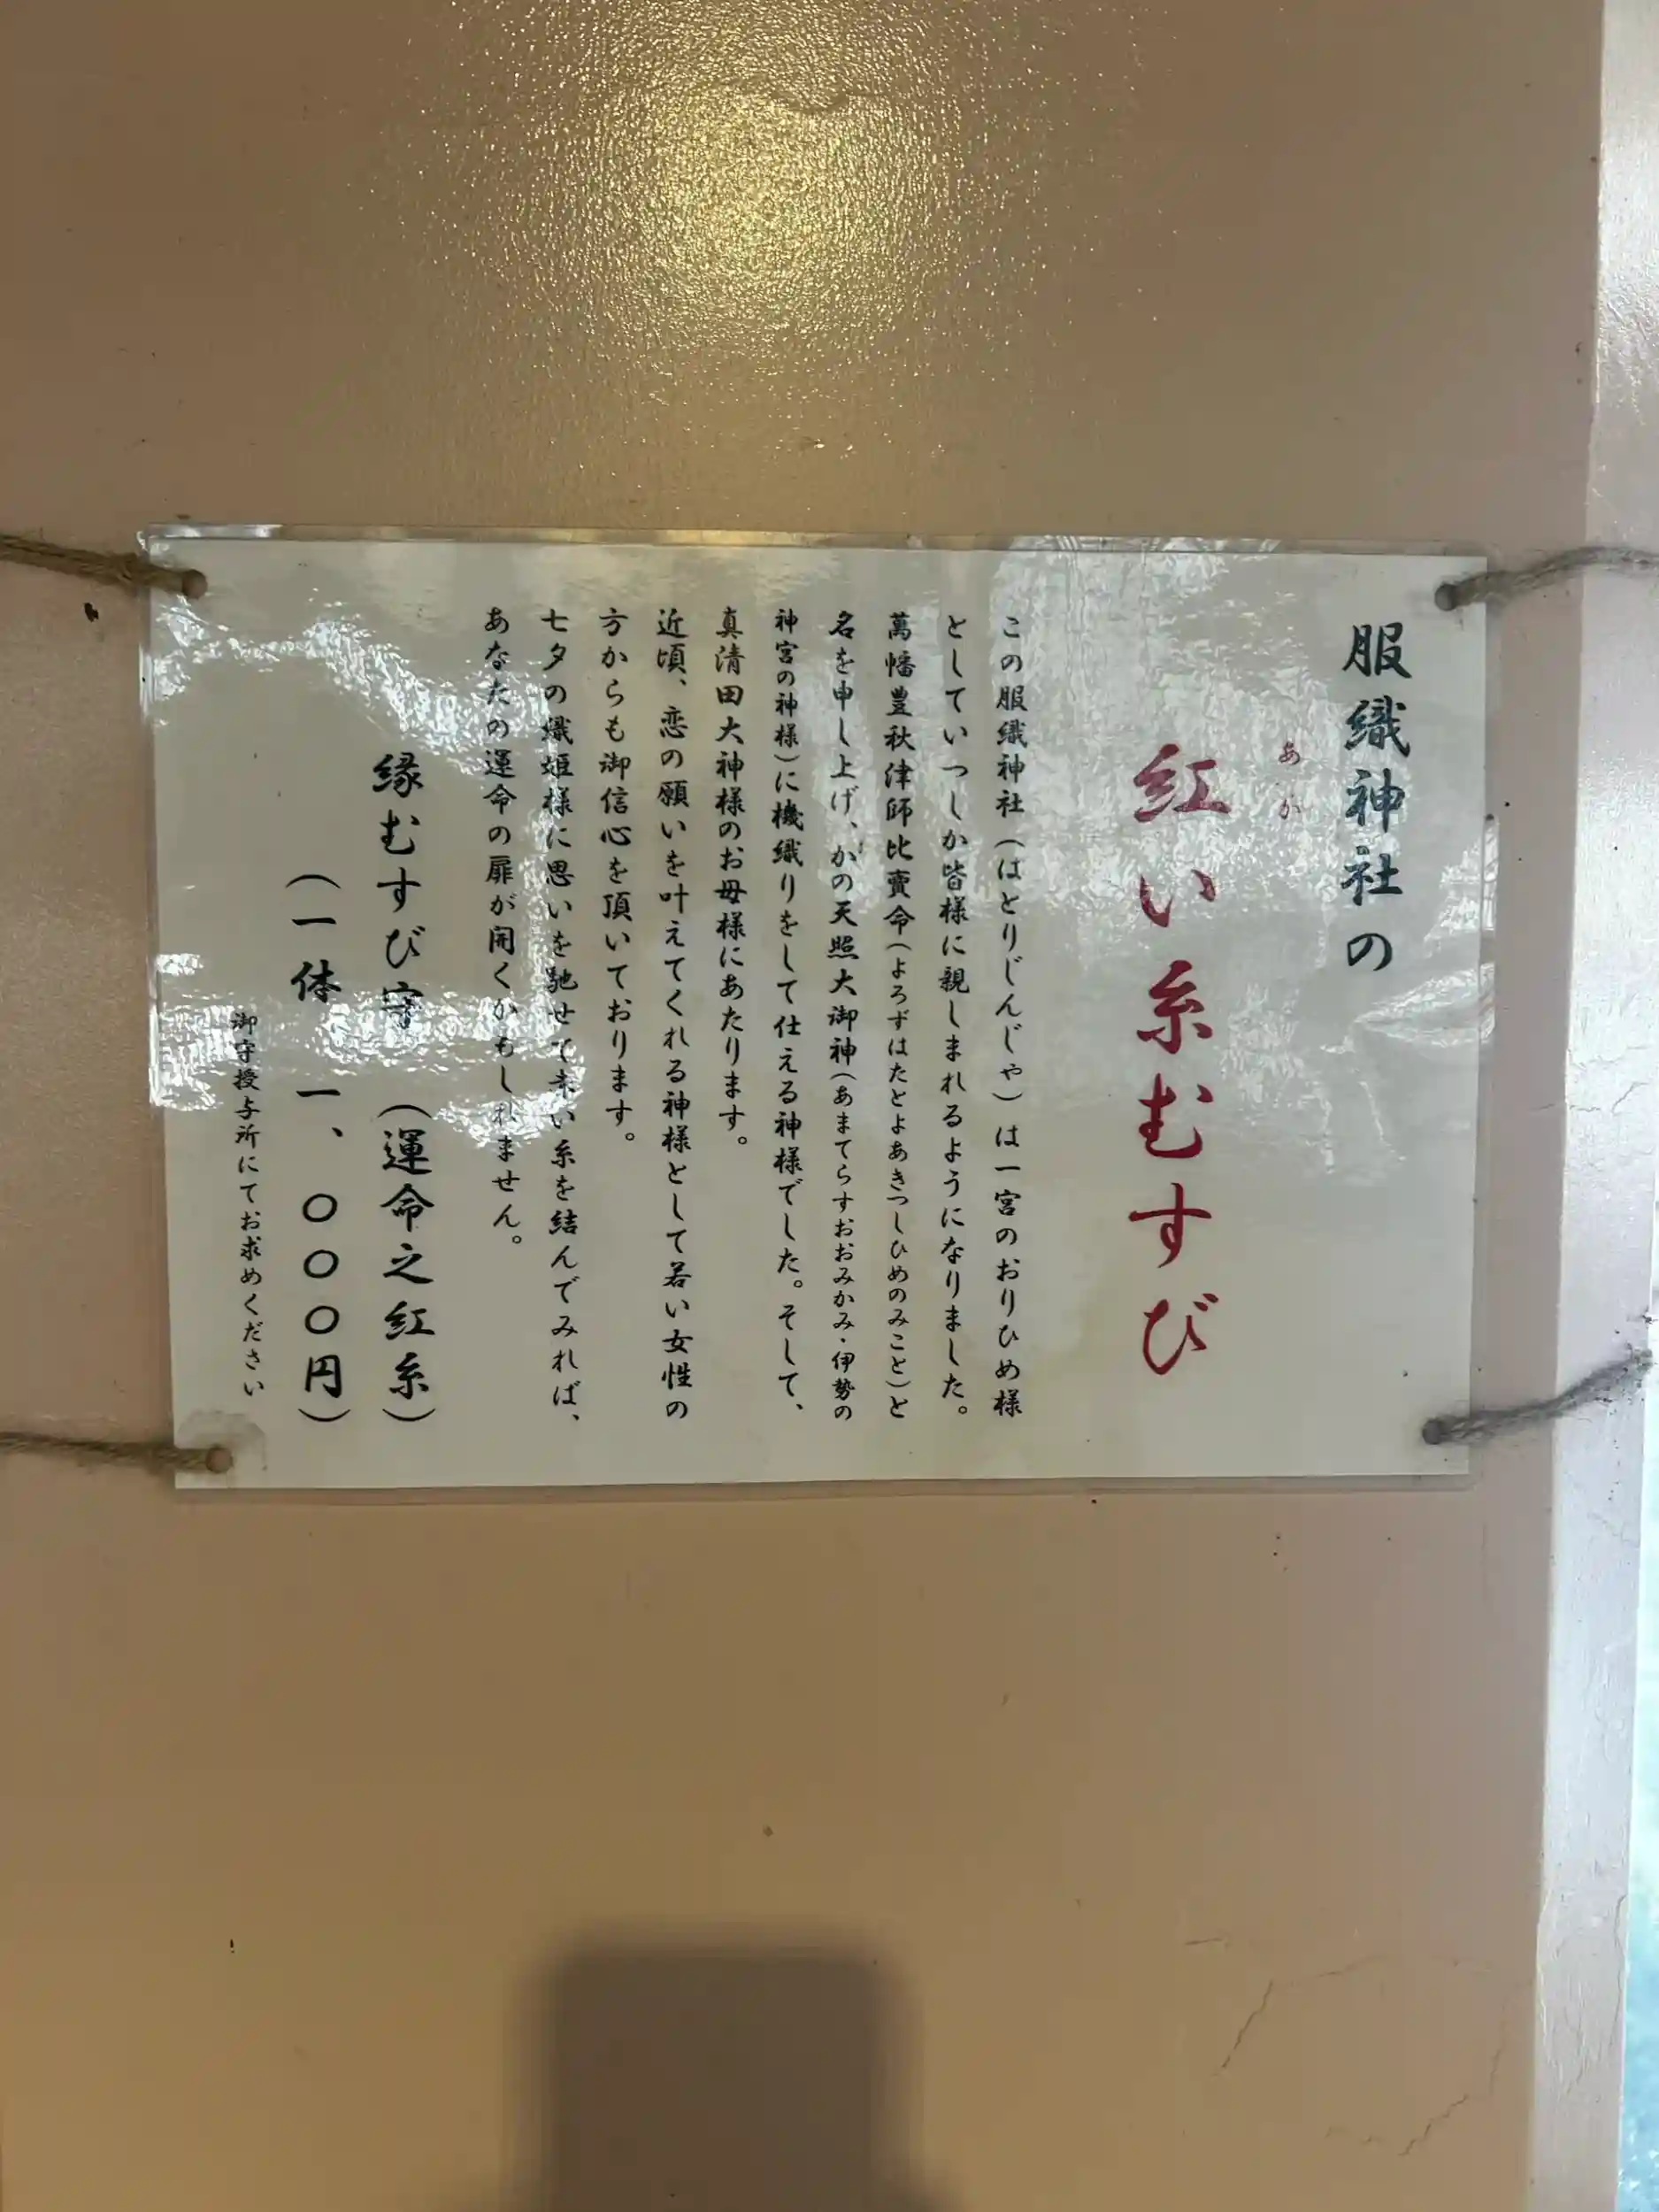 服織神社の
あか
紅い糸むすび
この服織神社（はとりじんじゃ）は一宮のおりひめ様
としていつしか皆様に親しまれるようになりました。
萬幡豊秋津師比賣命（よろずはたとよあきつしひめのみこと）と
名を申し上げ、かの天照大御神（あまてらすおおみかみ・伊勢の
神宮の神様）に機織りをして仕える神様でした。そして、
真清田大神様のお母様にあたります。
近頃、恋の願いを叶えてくれる神様として若い女性の
方からも御信心を頂いております。
七夕の織姫様に思いを馳せて赤い糸を結んでみれば、
あなたの運命の扉が開くかもしれません。
縁むすび守（運命之紅糸）
（一体　一、〇〇〇円）
御守授与所にてお求めください